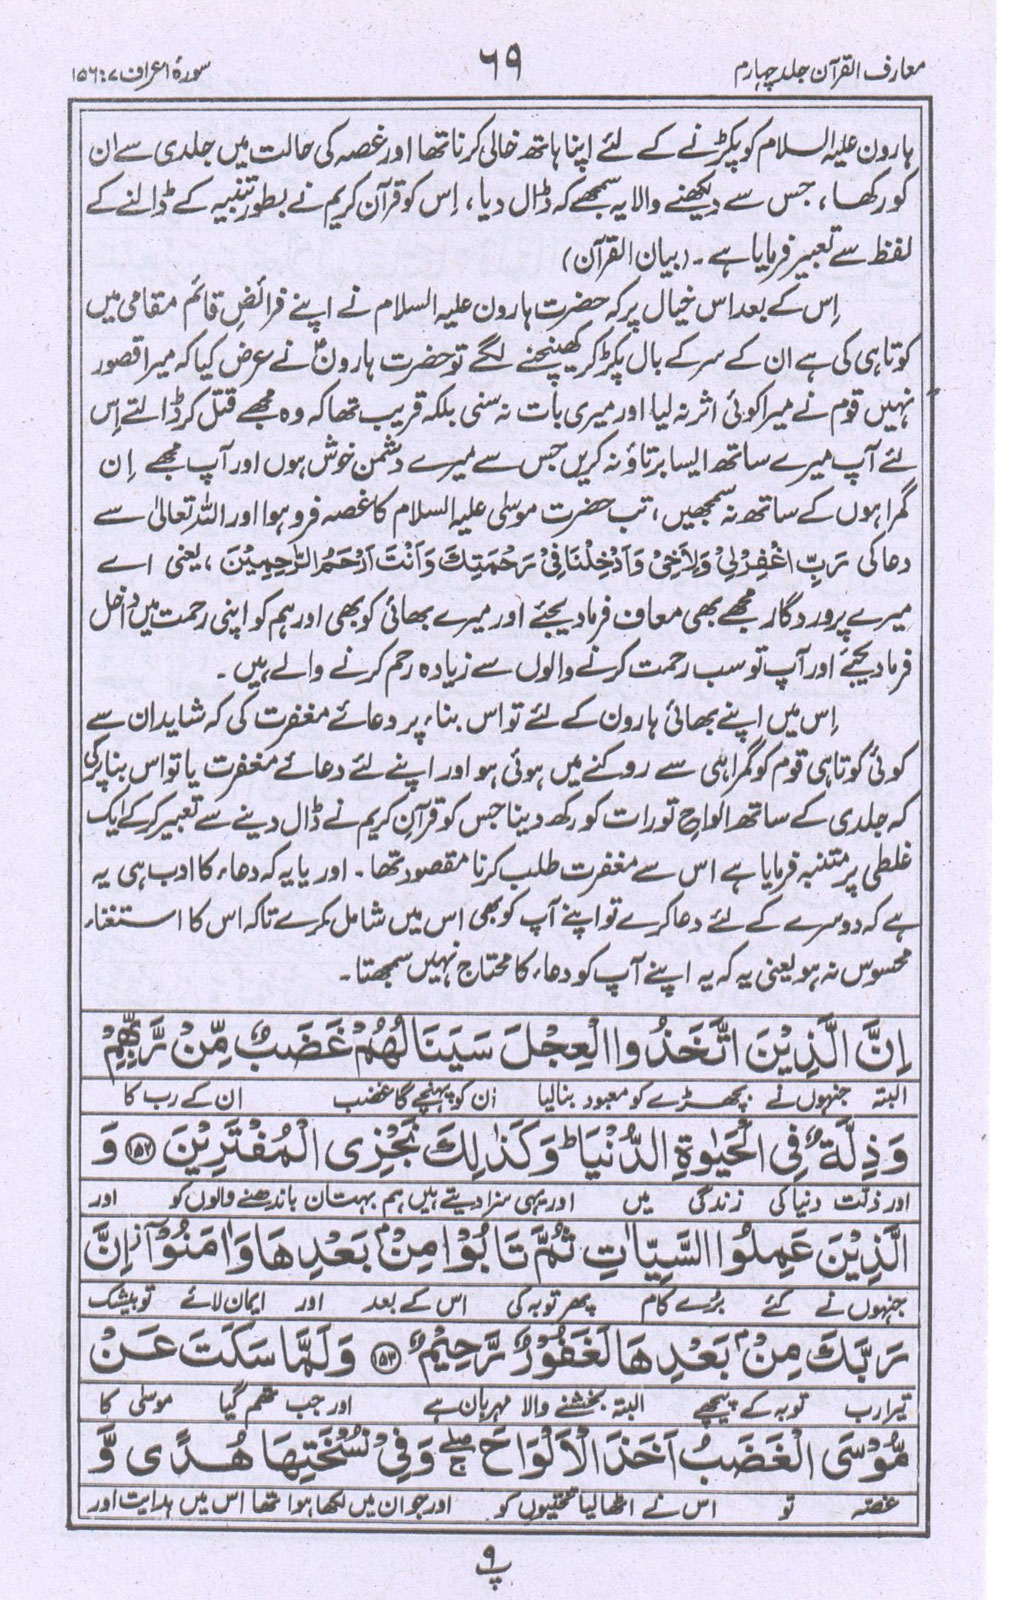 معارف القرآن جلد چہارم
۶۹
سورۂ اعراف ۷ : ۱۵۶
ہارون علیہ السلام کو پکڑنے کے لئے اپنا ہاتھ خالی کرنا تھا اور غصہ کی حالت میں جلدی سے ان
کو رکھا، جس سے دیکھنے والا یہ سمجھے کہ ڈال دیا، اِس کو قرآن کریم نے بطور تنبیہ کے ڈالنے کے
لفظ سے تعبیر فرمایا ہے۔ (بیان القرآن)
اِس کے بعد اس خیال پر کہ حضرت ہارون علیہ السلام نے اپنے فرائضِ قائم مقامی میں
کوتاہی کی ہے ان کے سر کے بال پکڑ کر کھینچنے لگے تو حضرت ہارونؑ نے عرض کیا کہ میرا قصور
نہیں قوم نے میرا کوئی اثر نہ لیا اور میری بات نہ سنی بلکہ قریب تھا کہ وہ مجھے قتل کر ڈالتے اِس
لئے آپ میرے ساتھ ایسا برتاؤ نہ کریں جس سے میرے دشمن خوش ہوں اور آپ مجھے اِن
گمراہوں کے ساتھ نہ سمجھیں، تب حضرت موسیٰ علیہ السلام کا غصہ فرو ہوا اور اللہ تعالیٰ سے
دعا کی رَبِّ اغْفِرْلِیْ وَلِاَخِیْ وَاَدْخِلْنَا فِیْ رَحْمَتِكَ وَاَنْتَ اَرْحَمُ الرّٰحِمِیْنَ، یعنی اے
میرے پروردگار مجھے بھی معاف فرما دیجئے اور میرے بھائی کو بھی اور ہم کو اپنی رحمت میں داخل
فرما دیجئے اور آپ تو سب رحمت کرنے والوں سے زیادہ رحم کرنے والے ہیں۔
اِس میں اپنے بھائی ہارون کے لئے تو اس بناء پر دعائے مغفرت کی کہ شاید ان سے
کوئی کوتاہی قوم کو گمراہی سے روکنے میں ہوئی ہو اور اپنے لئے دعائے مغفرت یا تو اس بنا پر کی
کہ جلدی کے ساتھ الواحِ تورات کو رکھ دینا جس کو قرآن کریم نے ڈال دینے سے تعبیر کرکے ایک
غلطی پر متنبہ فرمایا ہے اس سے مغفرت طلب کرنا مقصود تھا۔ اور یا یہ کہ دعاء کا ادب ہی یہ
ہے کہ دوسرے کے لئے دعا کرے تو اپنے آپ کو بھی اس میں شامل کرے تاکہ اس کا استغناء
محسوس نہ ہو یعنی یہ کہ یہ اپنے آپ کو دعاء کا محتاج نہیں سمجھتا۔
اِنَّ الَّذِیْنَ اتَّخَذُوا الْعِجْلَ سَیَنَالُهُمْ غَضَبٌ مِّنْ رَّبِّهِمْ
البتہ جنہوں نے بچھڑے کو معبود بنا لیا ان کو پہنچے گا غضب ان کے رب کا
وَذِلَّةٌ فِی الْحَیٰوةِ الدُّنْیَا ؕ وَكَذٰلِكَ نَجْزِی الْمُفْتَرِیْنَ ﴿۱۵۲﴾ وَ
اور ذلت دنیا کی زندگی میں اور یہی سزا دیتے ہیں ہم بہتان باندھنے والوں کو اور
الَّذِیْنَ عَمِلُوا السَّیِّاٰتِ ثُمَّ تَابُوْا مِنْۢ بَعْدِهَا وَاٰمَنُوْۤا ز اِنَّ
جنہوں نے کئے بُرے کام پھر توبہ کی اس کے بعد اور ایمان لائے تو بیشک
رَبَّكَ مِنْۢ بَعْدِهَا لَغَفُوْرٌ رَّحِیْمٌ ﴿۱۵۳﴾ وَلَمَّا سَكَتَ عَنْ
تیرا رب توبہ کے پیچھے البتہ بخشنے والا مہربان ہے اور جب تھم گیا موسیٰ کا
مُّوْسَی الْغَضَبُ اَخَذَ الْاَلْوَاحَ ۖۚ وَفِیْ نُسْخَتِهَا هُدًی وَّ
غصہ تو اس نے اٹھا لیا تختیوں کو اور جو ان میں لکھا ہوا تھا اس میں ہدایت اور
پ ۹